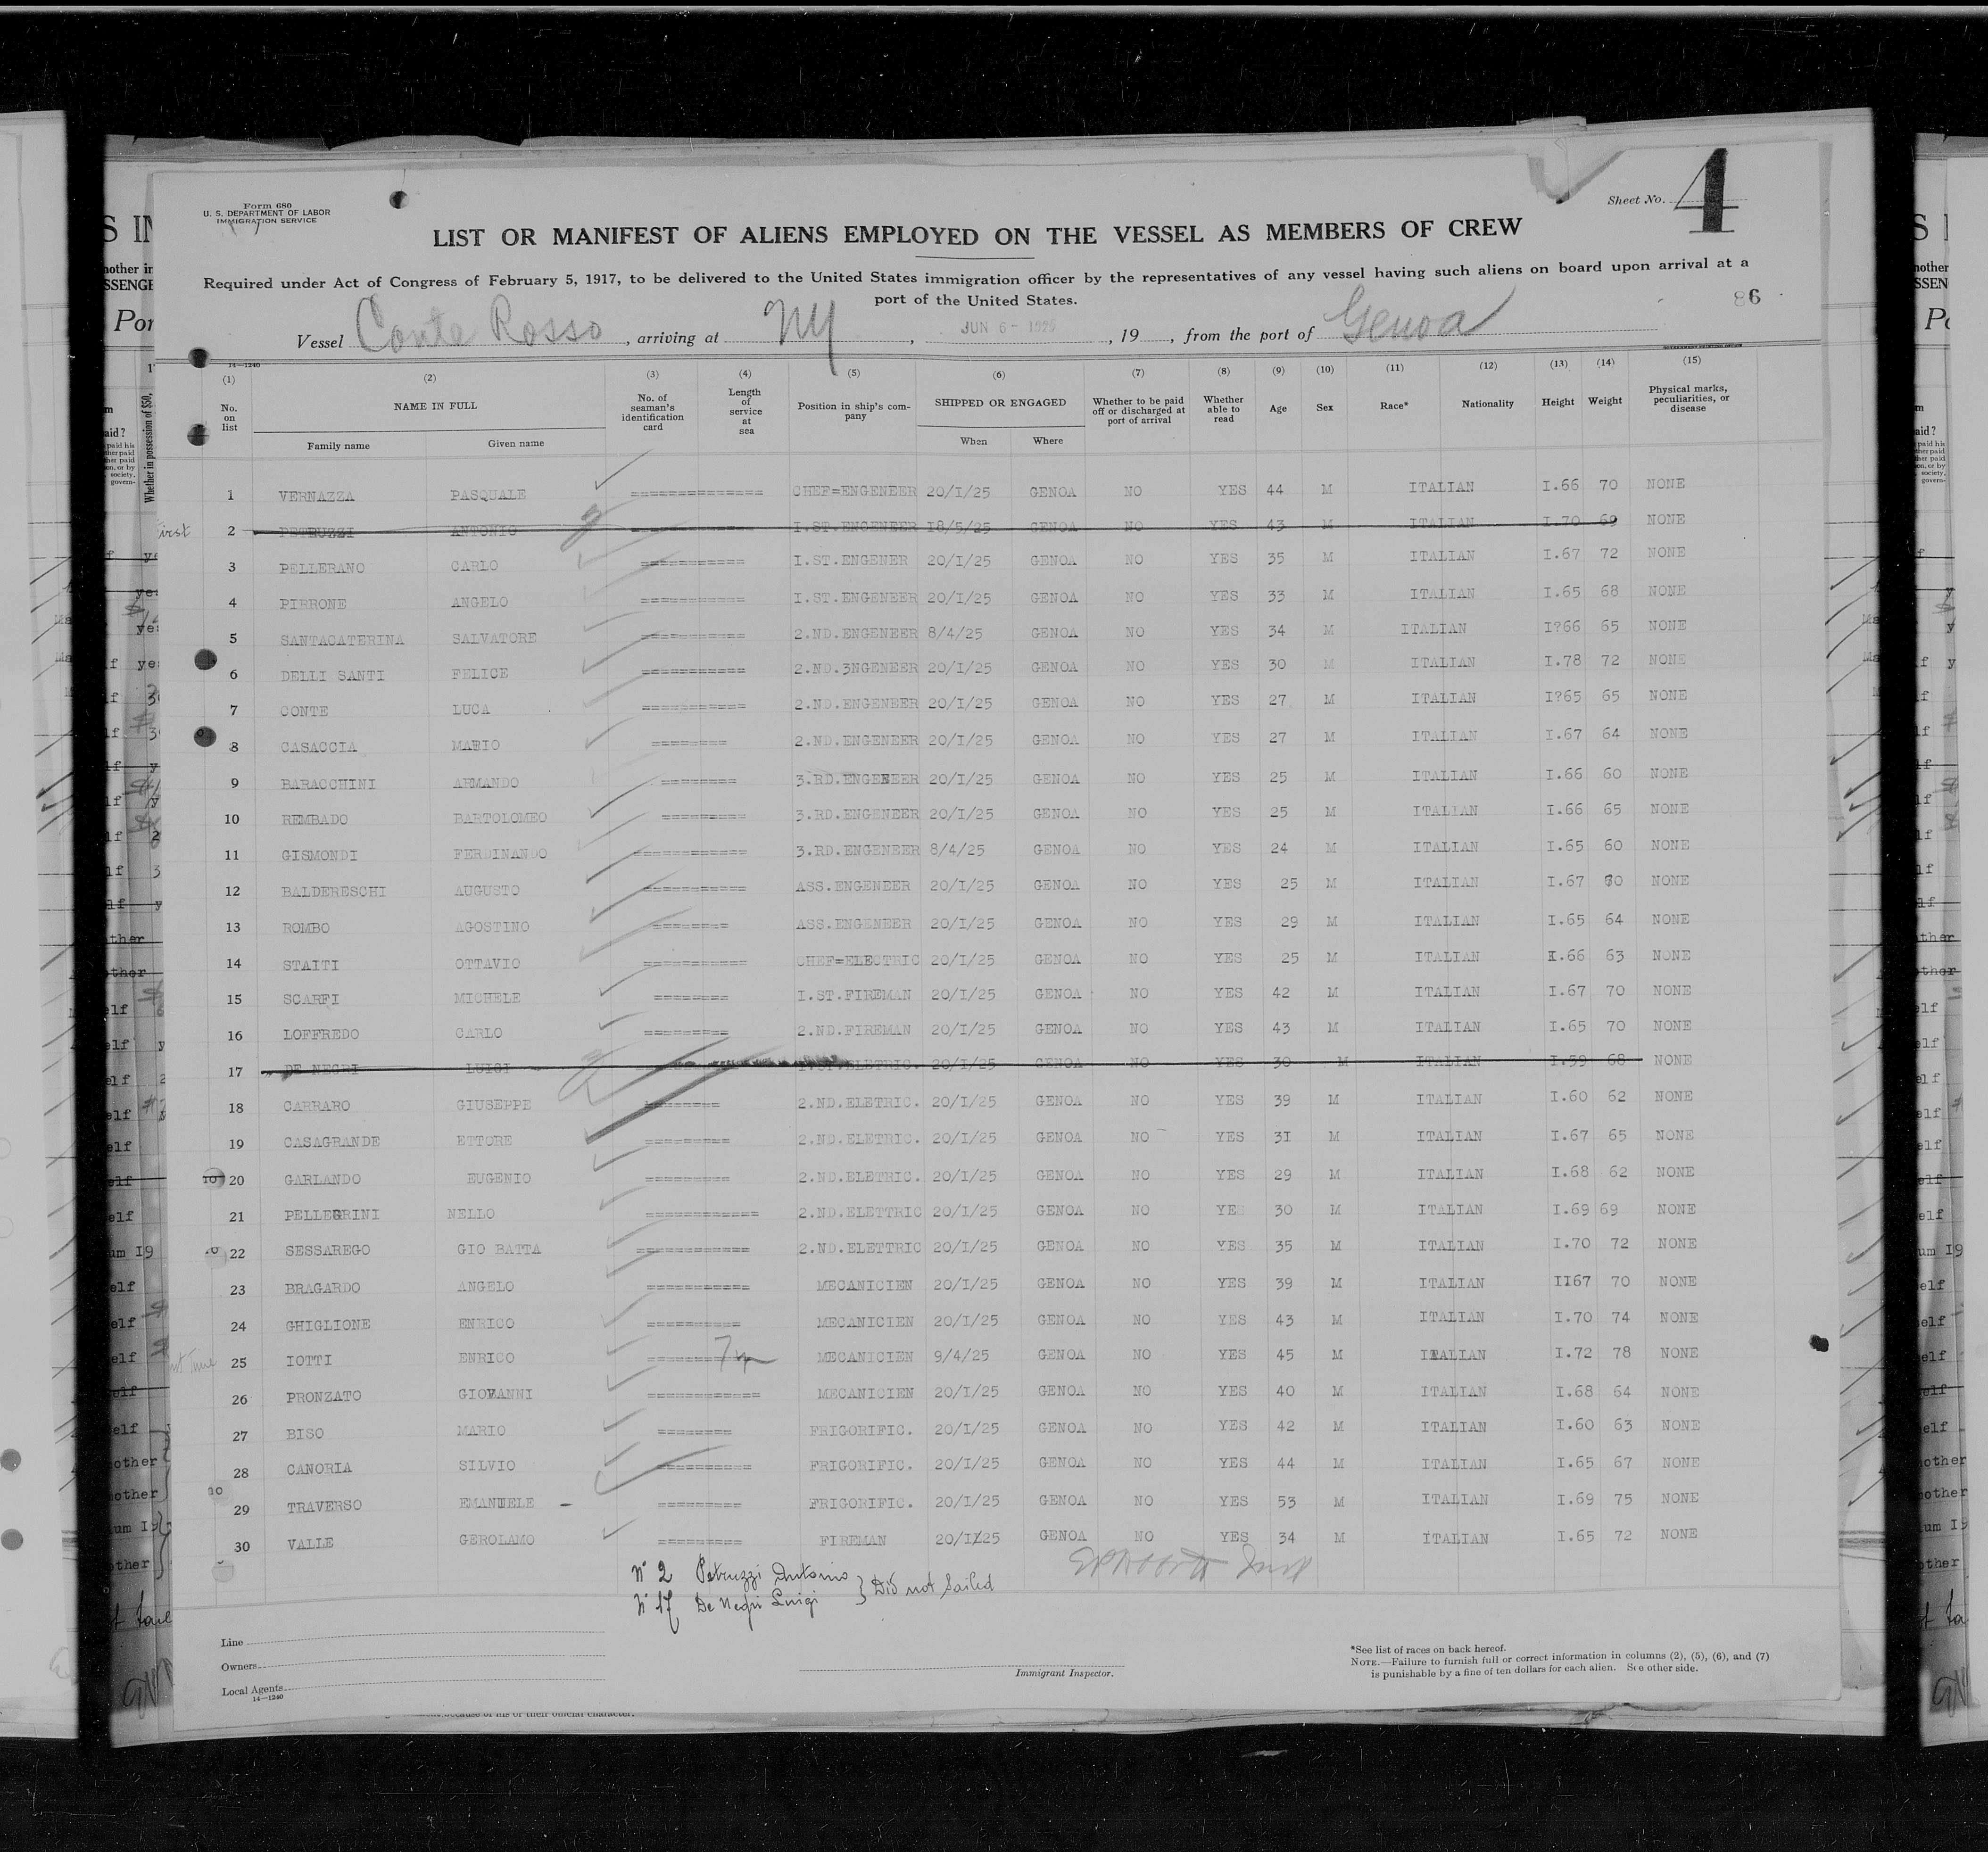 Form 680
U. S. DEPARTMENT OF LABOR
IMMIGRATION SERVICE
Sheet No. 4
LIST OR MANIFEST OF ALIENS EMPLOYED ON THE VESSEL AS MEMBERS OF CREW
Required under Act of Congress of February 5, 1917, to be delivered to the United States immigration officer by the representatives of any vessel having such aliens on board upon arrival at a
port of the United States.
86
Vessel Conte Rosso, arriving at NY, JUN 6 - 1925, 19, from the port of Genoa
14—1240
(1) (2) (3) (4) (5) (6) (7) (8) (9) (10) (11) (12) (13) (14) (15)
No. on list NAME IN FULL No. of seaman's identification card Length of service at sea Position in ship's company SHIPPED OR ENGAGED Whether to be paid off or discharged at port of arrival Whether able to read Age Sex Race* Nationality Height Weight Physical marks, peculiarities, or disease
Family name Given name When Where
1 VERNAZZA PASQUALE ============== CHEF=ENGENEER 20/I/25 GENOA NO YES 44 M ITALIAN I.66 70 NONE
2 PETRUZZI ANTONIO I.ST.ENGENEER I8/5/25 GENOA NO YES 43 M ITALIAN I.70 69 NONE
3 PELLERANO CARLO =========== I.ST.ENGENER 20/I/25 GENOA NO YES 35 M ITALIAN I.67 72 NONE
4 PIRRONE ANGELO =========== I.ST.ENGENEER 20/I/25 GENOA NO YES 33 M ITALIAN I.65 68 NONE
5 SANTACATERINA SALVATORE =========== 2.ND.ENGENEER 8/4/25 GENOA NO YES 34 M ITALIAN I?66 65 NONE
6 DELLI SANTI FELICE =========== 2.ND.3NGENEER 20/I/25 GENOA NO YES 30 M ITALIAN I.78 72 NONE
7 CONTE LUCA =========== 2.ND.ENGENEER 20/I/25 GENOA NO YES 27 M ITALIAN I?65 65 NONE
8 CASACCIA MARIO ======== 2.ND.ENGENEER 20/I/25 GENOA NO YES 27 M ITALIAN I.67 64 NONE
9 BARACCHINI ARMANDO ======== 3.RD.ENGENEER 20/I/25 GENOA NO YES 25 M ITALIAN I.66 60 NONE
10 REMBADO BARTOLOMEO ========= 3.RD.ENGENEER 20/I/25 GENOA NO YES 25 M ITALIAN I.66 65 NONE
11 GISMONDI FERDINANDO ============ 3.RD.ENGENEER 8/4/25 GENOA NO YES 24 M ITALIAN I.65 60 NONE
12 BALDERESCHI AUGUSTO =========== ASS.ENGENEER 20/I/25 GENOA NO YES 25 M ITALIAN I.67 60 NONE
13 ROMBO AGOSTINO ======== ASS.ENGENEER 20/I/25 GENOA NO YES 29 M ITALIAN I.65 64 NONE
14 STAITI OTTAVIO =========== CHEF=ELECTRIC 20/I/25 GENOA NO YES 25 M ITALIAN I.66 63 NONE
15 SCARFI MICHELE ======== I.ST.FIREMAN 20/I/25 GENOA NO YES 42 M ITALIAN I.67 70 NONE
16 LOFFREDO CARLO ========= 2.ND.FIREMAN 20/I/25 GENOA NO YES 43 M ITALIAN I.65 70 NONE
17 DE NEGRI LUIGI I.ST.ELETRIC. 20/I/25 GENOA NO YES 30 M ITALIAN I.59 68 NONE
18 CARRARO GIUSEPPE ======== 2.ND.ELETRIC. 20/I/25 GENOA NO YES 39 M ITALIAN I.60 62 NONE
19 CASAGRANDE ETTORE ========= 2.ND.ELETRIC. 20/I/25 GENOA NO YES 3I M ITALIAN I.67 65 NONE
20 GARLANDO EUGENIO ========= 2.ND.ELETRIC. 20/I/25 GENOA NO YES 29 M ITALIAN I.68 62 NONE
21 PELLEGRINI NELLO ============ 2.ND.ELETTRIC 20/I/25 GENOA NO YES 30 M ITALIAN I.69 69 NONE
22 SESSAREGO GIO BATTA ============ 2.ND.ELETTRIC 20/I/25 GENOA NO YES 35 M ITALIAN I.70 72 NONE
23 BRAGARDO ANGELO =========== MECANICIEN 20/I/25 GENOA NO YES 39 M ITALIAN II67 70 NONE
24 GHIGLIONE ENRICO ========== MECANICIEN 20/I/25 GENOA NO YES 43 M ITALIAN I.70 74 NONE
25 IOTTI ENRICO ======== MECANICIEN 9/4/25 GENOA NO YES 45 M ITALIAN I.72 78 NONE
26 PRONZATO GIOVANNI ============ MECANICIEN 20/I/25 GENOA NO YES 40 M ITALIAN I.68 64 NONE
27 BISO MARIO ======== FRIGORIFIC. 20/I/25 GENOA NO YES 42 M ITALIAN I.60 63 NONE
28 CANORIA SILVIO ========== FRIGORIFIC. 20/I/25 GENOA NO YES 44 M ITALIAN I.65 67 NONE
29 TRAVERSO EMANUELE ========= FRIGORIFIC. 20/I/25 GENOA NO YES 53 M ITALIAN I.69 75 NONE
30 VALLE GEROLAMO ========= FIREMAN 20/I/25 GENOA NO YES 34 M ITALIAN I.65 72 NONE
N° 2 Petruzzi Antonio } Did not Sailed
N° 17 De Negri Luigi
Line
Owners
Local Agents
14—1240
Immigrant Inspector.
*See list of races on back hereof.
NOTE.—Failure to furnish full or correct information in columns (2), (5), (6), and (7)
is punishable by a fine of ten dollars for each alien. See other side.